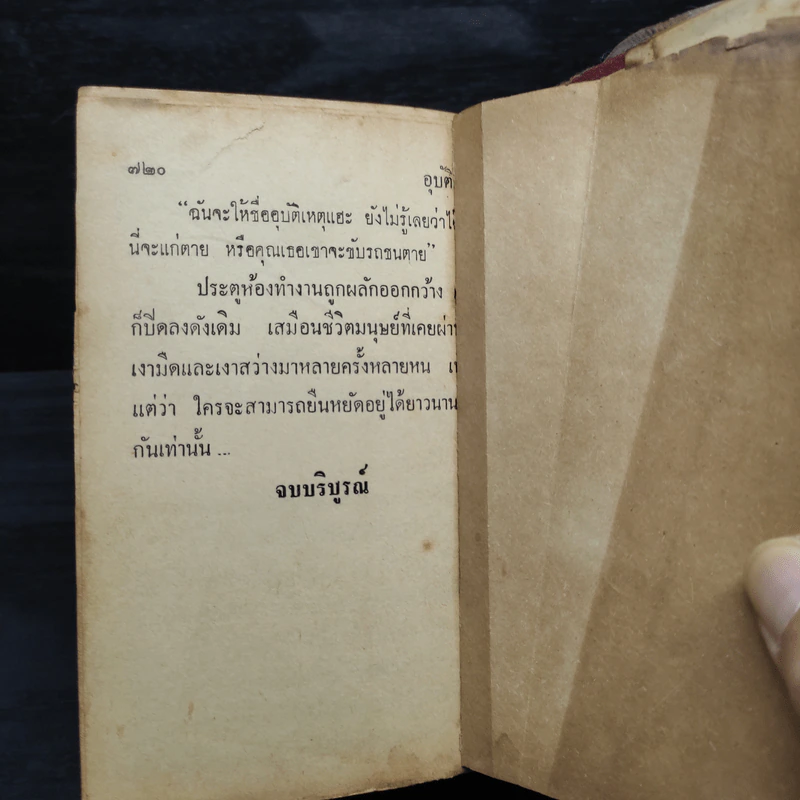 ๗๒๐
อุบัติ
“ฉันจะให้ชื่ออุบัติเหตุแฮะ ยังไม่รู้เลยว่า
นี่จะแก่ตาย หรือคุณเธอเขาจะขับรถชนตาย”
ประตูห้องทำงานถูกผลักออกกว้าง
ก็ปิดลงดังเดิม เสมือนชีวิตมนุษย์ที่เคยผ่าน
เงามืดและเงาสว่างมาหลายครั้งหลายหน
แต่ว่า ใครจะสามารถยืนหยัดอยู่ได้ยาวนาน
กันเท่านั้น ...
จบบริบูรณ์